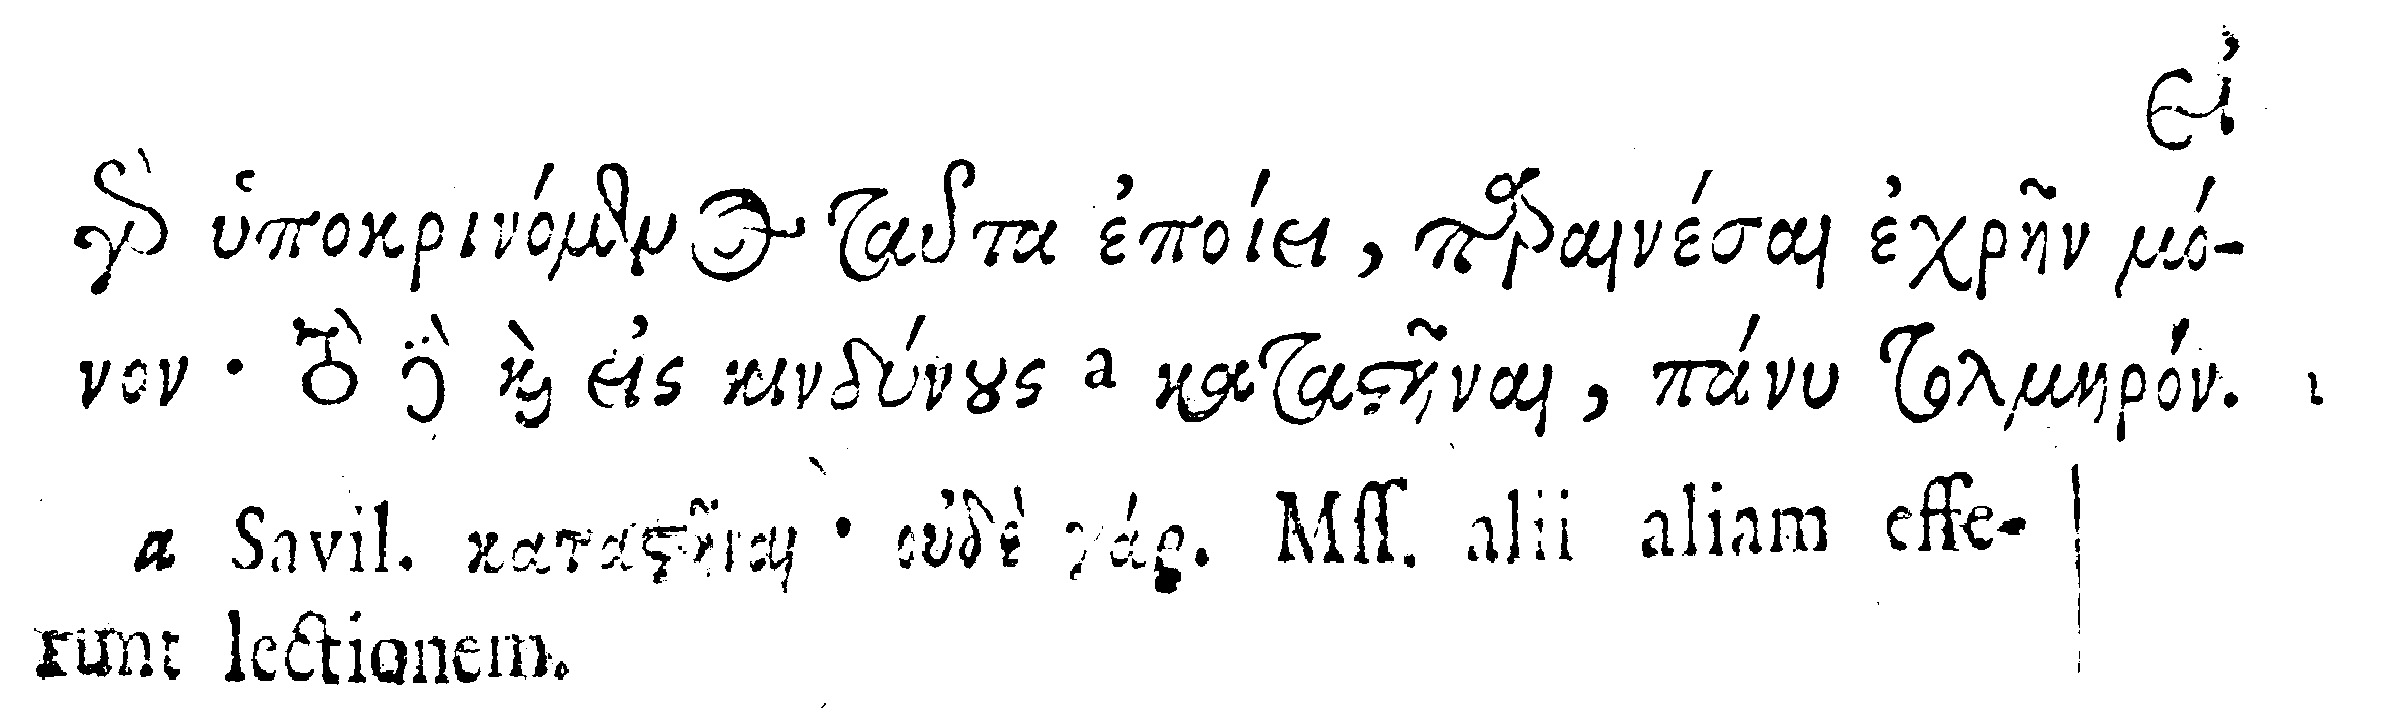 εἰ
γὰρ ὑποκρινόμενος ταῦτα ἐποίει, παραινέσαι ἐχρῆν μό-
νον· τὸ δὲ καὶ εἰς κινδύνους a καταστῆναι, πάνυ τολμηρόν.
a Savil. καταστῆναι· οὐδὲ γάρ. Mſſ. alii aliam effe-
runt lectionem.